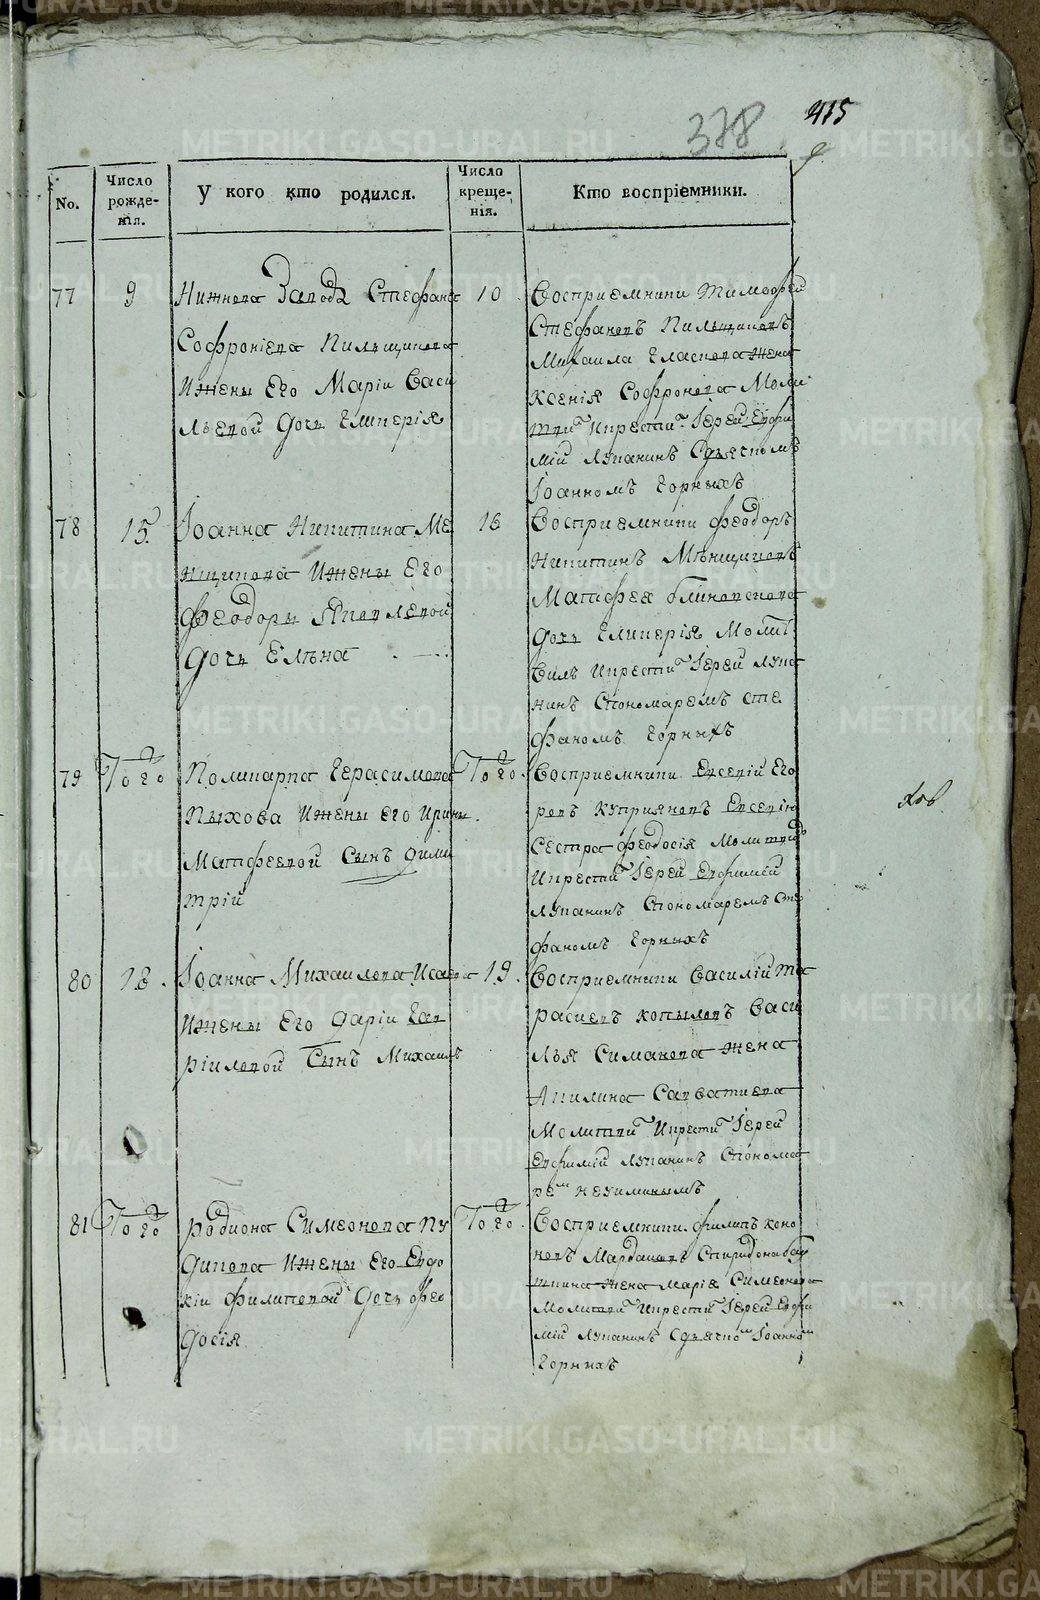 415
378
No.
Число рожде-нія.
У кого кто родился.
Число креще-нія.
Кто воспріемники.
77
9
Нижнева Завода Стефана
Софроніева Пильщикова
Ижены Его Маріи Васи
льевой Дочь Гликерія
10
Восприемники Тимофей
Стефановъ Пильщиковъ
Михаила Власова Жена
Ксенія Софронова Моли
тви Икрести Іерей Евфи
мій Лупанинъ Сдьячкомъ
Іоанномъ Горныхъ
78
15
Іоанна Никитина Ме
нщикова Ижены Его
Феодоры Яковлевой
Дочь Елѣна
16
Восприемники Феодоръ
Никитинъ Мѣнщиковъ
Матфея Блиновскова
Дочь Гликерія Молит
вилъ Икрести Іерей Лупа
нинъ Спономаремъ Сте
фаномъ Горныхъ
79
Того
Поликарпа Герасимова
Пыхова Ижены Его Ирины
Матфеевой Сынъ Дими
трій
Того
Восприемники Евсевій Его
ровъ Куприяновъ Евсевію
Сестра Феодосія Молитви
Икрести Іерей Евфимій
Лупанинъ Спономаремъ Сте
фаномъ Горныхъ
80
18
Іоанна Михаилова Исаева
Ижены Его Даріи Гав
ріиловой Сынъ Михаилъ
19
Восприемники Василій Та
расиевъ Копыловъ Васи
лья Симанова жена
Акилина Савватиева
Молитви Икрести Іерей
Евфимій Лупанинъ Спонома
ремъ
81
Того
Родиона Симеонова Ку
дикова Ижены Его Евдо
кіи Филиповой Дочь Фео
досія
Того
Восприемники Филипъ Коно
новъ Спиридона
жена Марія Симеонова
Молитви Икрести Іерей Евфи
мій Лупанинъ Сдьячко Іоанно
Горныхъ
METRIKI.GASO-URAL.RU